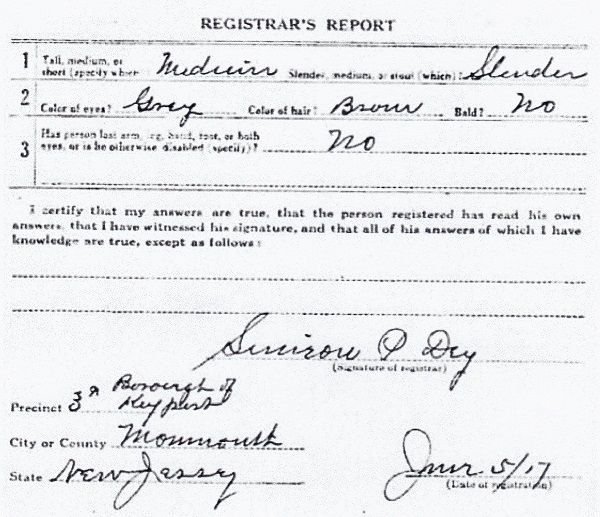 REGISTRAR'S REPORT
1 Tall, medium, or short (specify which) Medium Slender, medium, or stout (which)? Slender
2 Color of eyes? Grey Color of hair? Brown Bald? No
3 Has person lost arm, leg, hand, foot, or both eyes, or is he otherwise disabled (specify)? No
I certify that my answers are true, that the person registered has read his own
answers, that I have witnessed his signature, and that all of his answers of which I have
knowledge are true, except as follows:
P Dey
(Signature of registrar)
Precinct 3rd Borough of Keyport
City or County Monmouth
State New Jersey
June 5/17
(Date of registration)